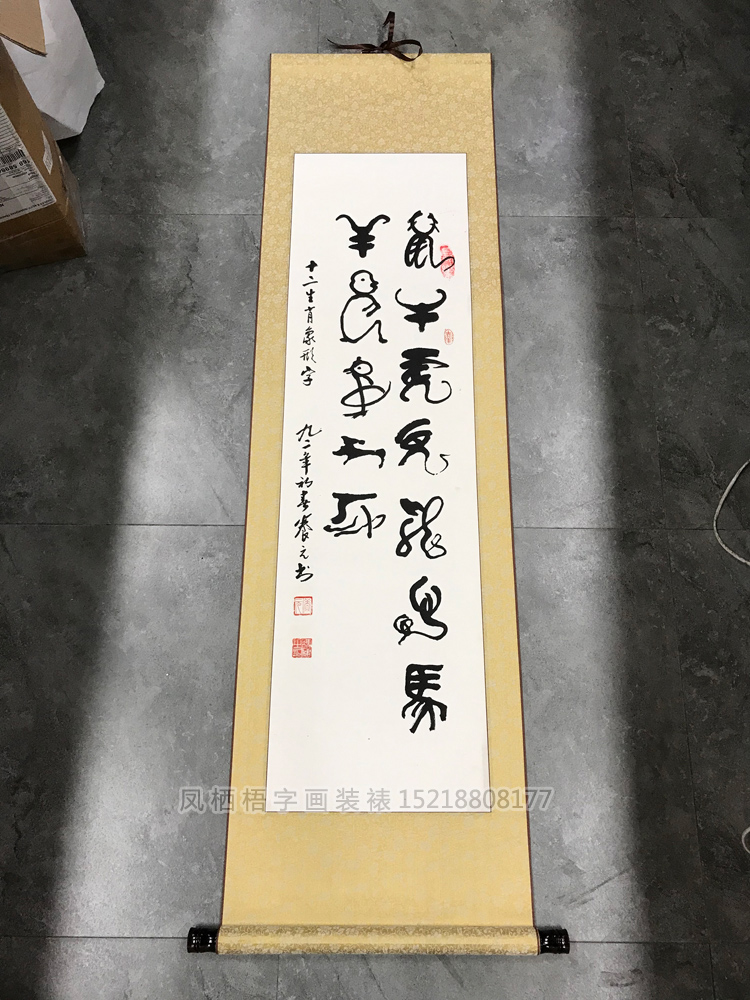 鼠牛虎兔龍蛇馬
羊猴雞狗豬
十二生肖象形字
九二年初春 元书
凤栖梧字画装裱15218808177